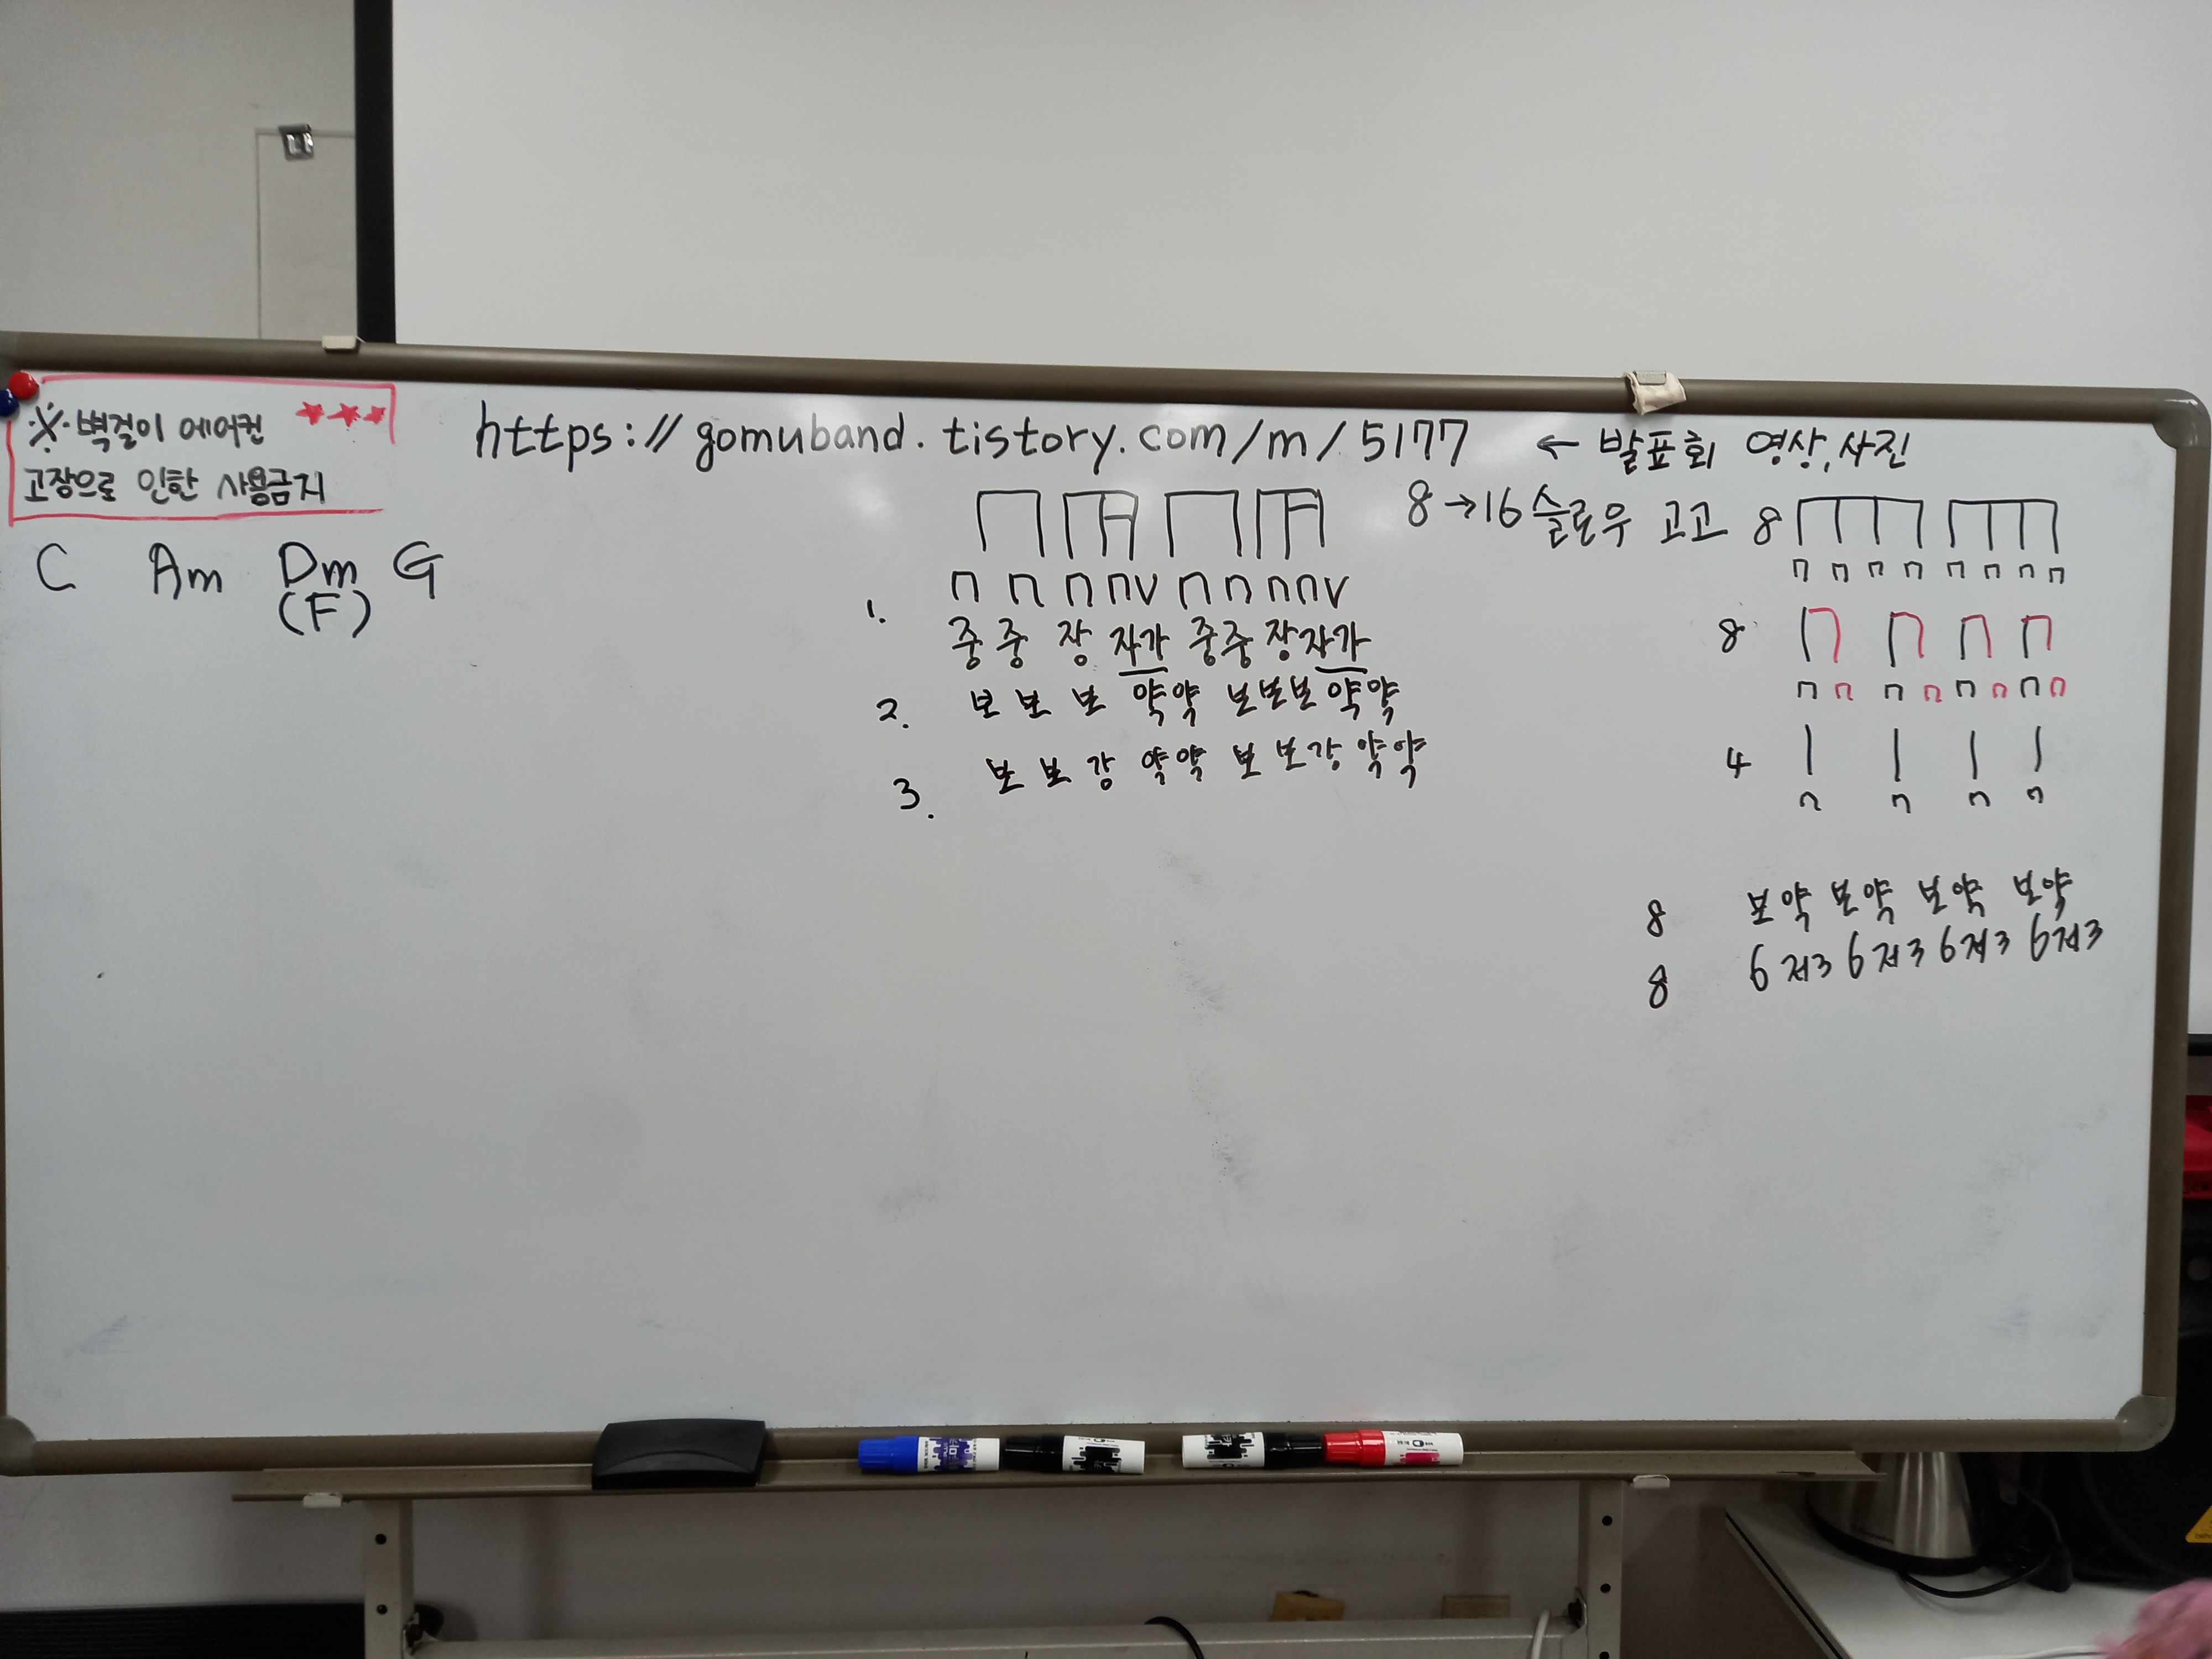 ※ 벽걸이 에어컨 ★★★
고장으로 인한 사용금지
https://gomuband.tistory.com/m/5177 ← 발표회 영상,사진
8→16 슬로우 고고
C Am Dm G
(F)
ㄇ ㄇ ㄇ ㄇV ㄇ ㄇ ㄇㄇV
1. 중 중 장 자가 중중 장자가
2. 보 보 보 약약 보보보 약약
3. 보 보 강 약약 보 보강 약약
8
ㄇ ㄇ ㄇ ㄇ ㄇ ㄇ ㄇ ㄇ
8
ㄇ ㄇ ㄇ ㄇ ㄇ ㄇ ㄇ ㄇ
4
ㄇ ㄇ ㄇ ㄇ
8 보약 보약 보약 보약
8 6저3 6저3 6저3 6저3